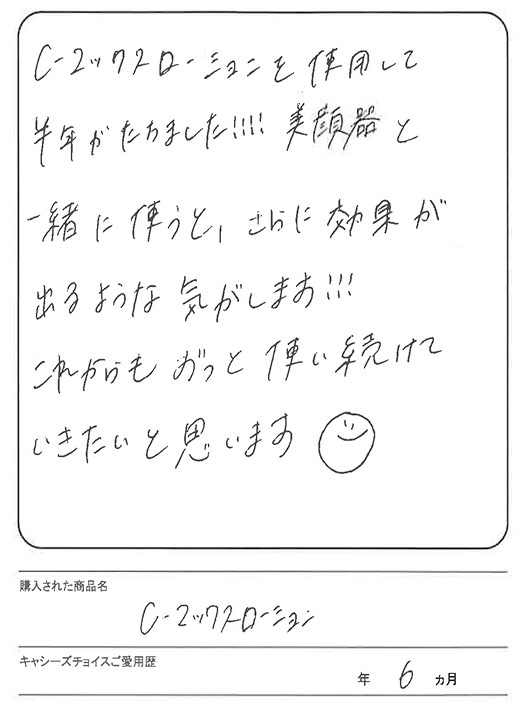 C-マックスローションを使用して
半年がたちました!!!! 美顔器と
一緒に使うと、さらに効果が
出るような気がします!!!
これからもずっと使い続けて
いきたいと思います
購入された商品名
C-マックスローション
キャシーズチョイスご愛用歴
年 6 ヵ月